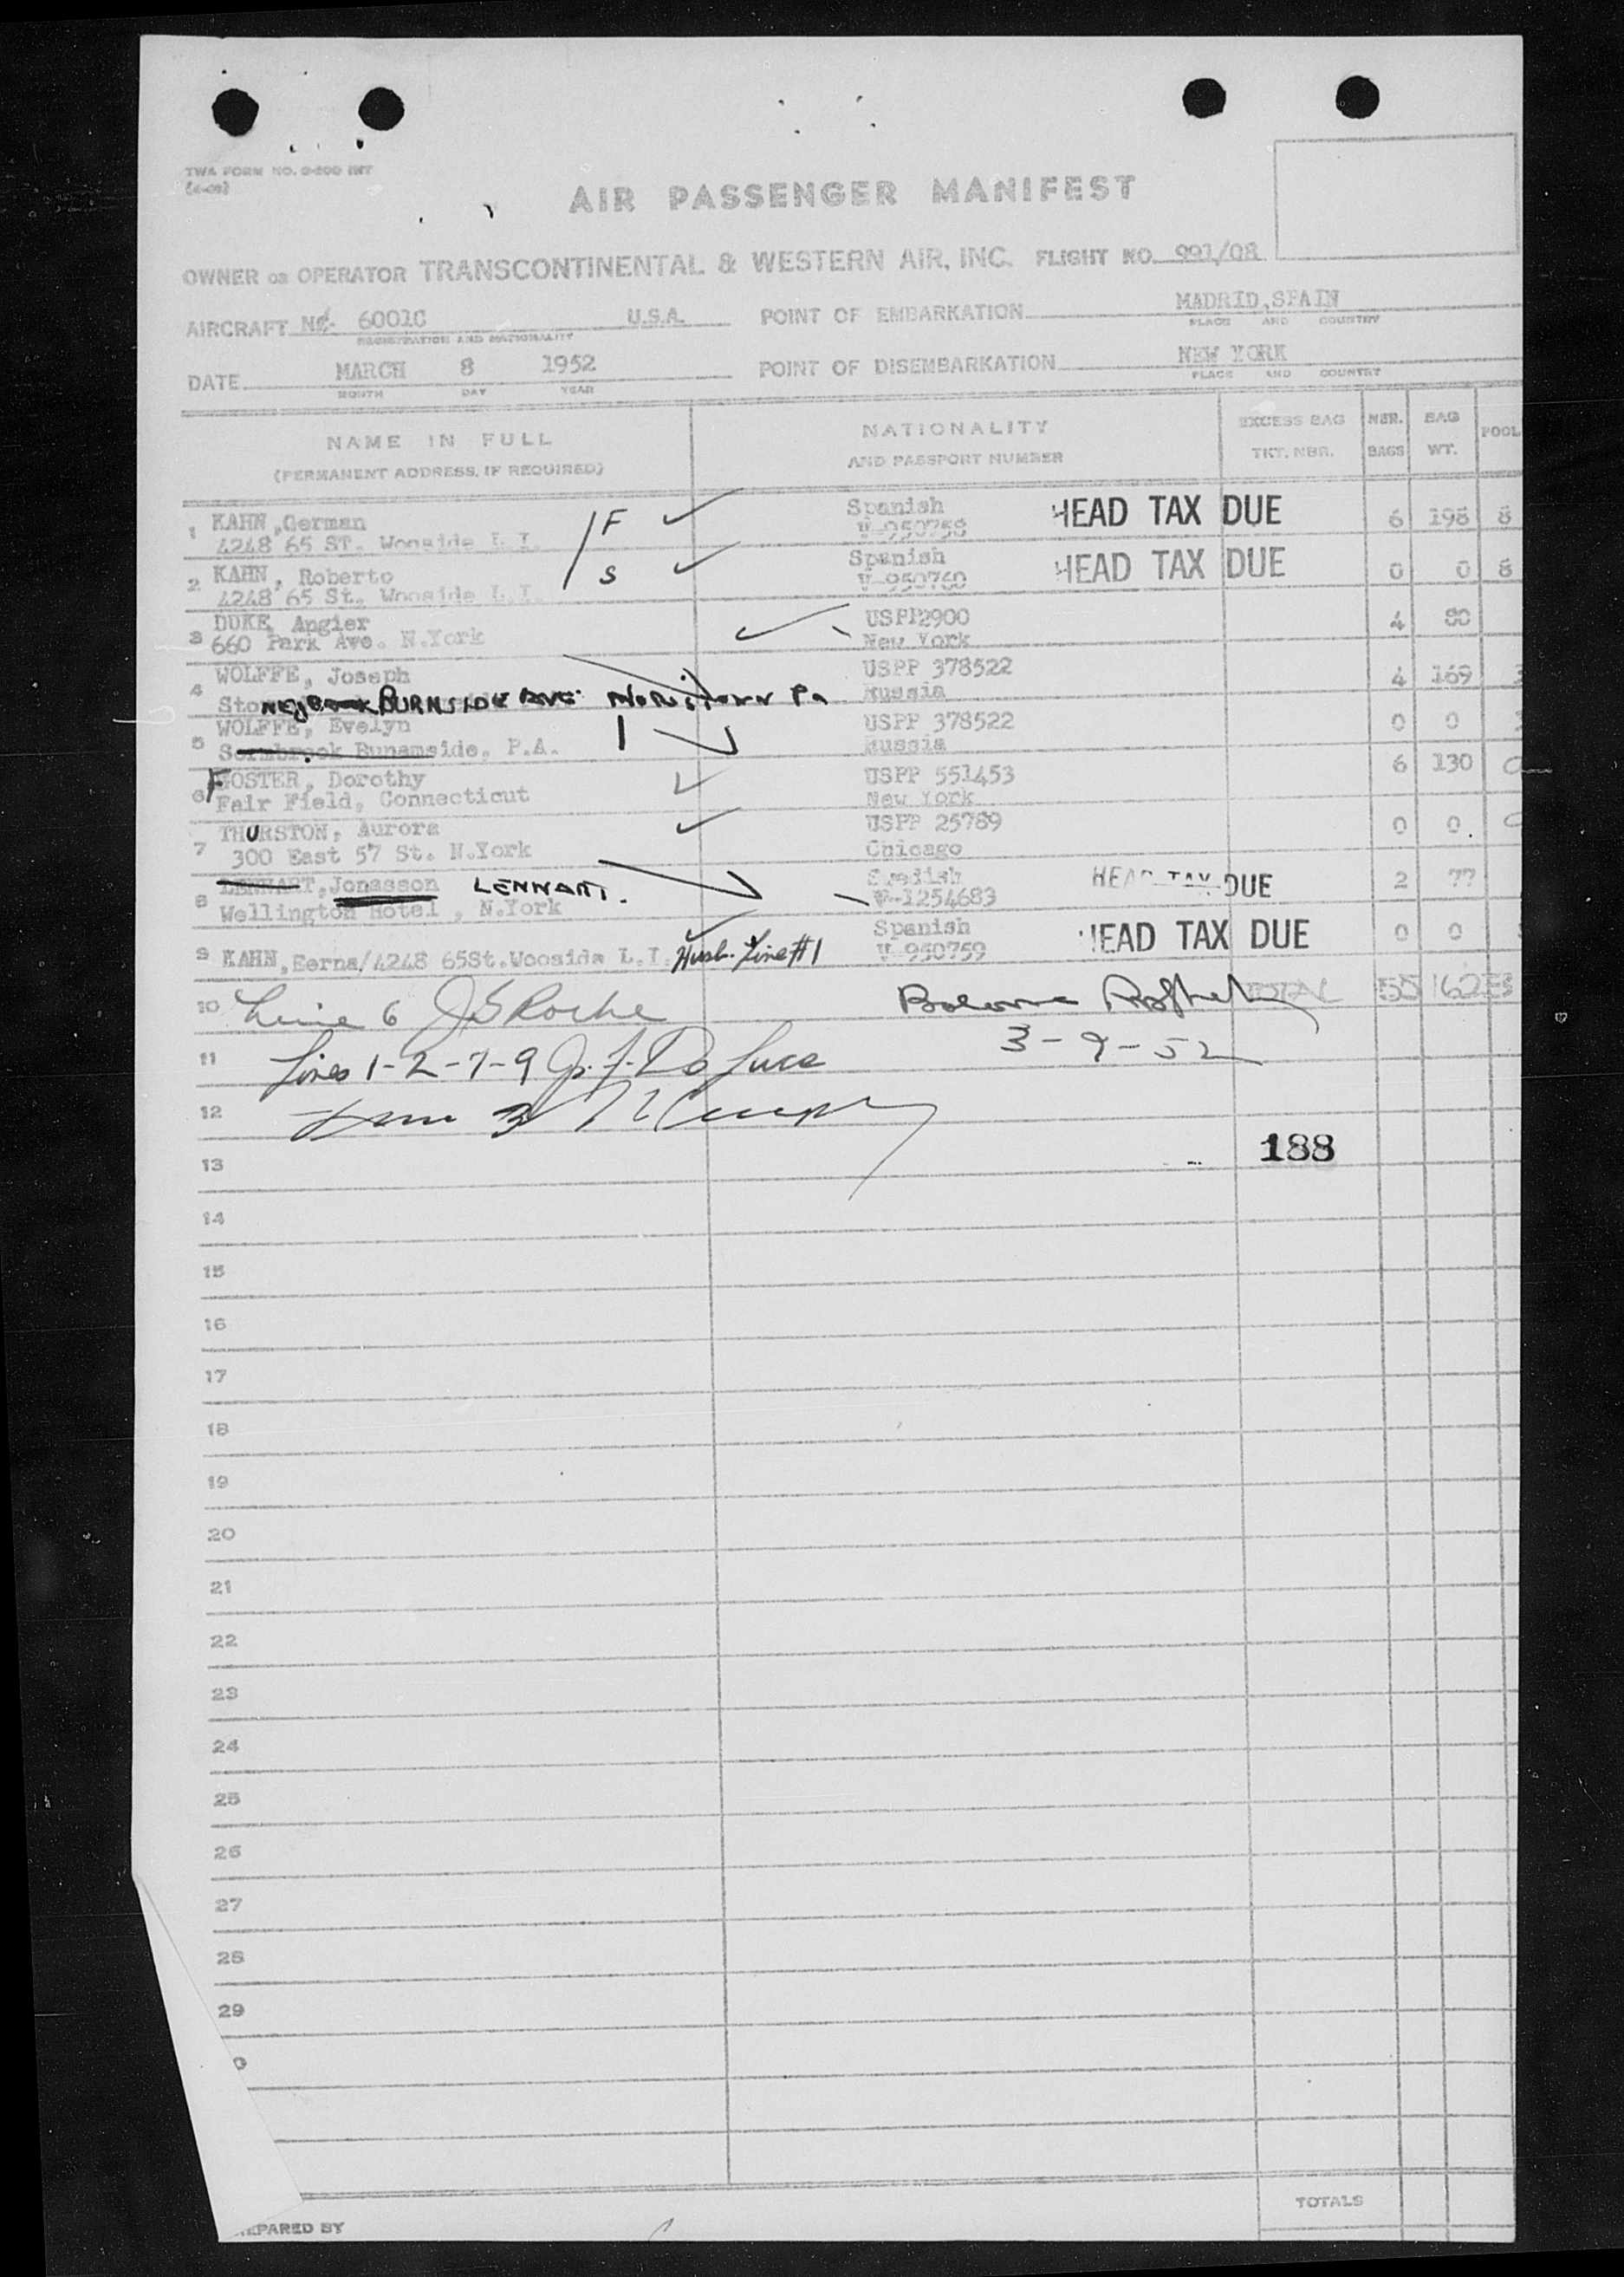 TWA FORM NO. 0-800 INT
AIR PASSENGER MANIFEST
OWNER OR OPERATOR TRANSCONTINENTAL & WESTERN AIR, INC. FLIGHT NO. 991/08
AIRCRAFT 6001C U.S.A. POINT OF EMBARKATION MADRID, SPAIN
REGISTRATION AND NATIONALITY PLACE AND COUNTRY
DATE MARCH 8 1952 POINT OF DISEMBARKATION NEW YORK
MONTH DAY YEAR PLACE AND COUNTRY
NAME IN FULL NATIONALITY EXCESS BAG NBR. BAG POOL
(PERMANENT ADDRESS, IF REQUIRED) AND PASSPORT NUMBER TKT. NBR. BAGS WT.
1 KAHN, German F Spanish HEAD TAX DUE 6 198 8
4248 65 ST. Wooside L I. V-950758
2 KAHN, Roberto S Spanish HEAD TAX DUE 0 0 8
4248 65 St. Wooside L.I. V-950760
3 DUKE, Angier USPP2900 4 80
660 Park Ave. N.York New York
4 WOLFFE, Joseph USPP 378522 4 169
BURNSIDE AVE. Pa Russia
5 WOLFFE, Evelyn USPP 378522 0 0
Bunamside, P.A. Russia
6 FOSTER, Dorothy USPP 551453 6 130
Fair Field, Connecticut New York
7 THURSTON, Aurora USPP 25789 0 0
300 East 57 St. N.York Chicago
8 LENNART, Jonasson LENNART. Swedish HEAD TAX DUE 2 77
Wellington Hotel, N.York V-1254683
9 KAHN, /4248 65St. Wooside L.I. Husb. Line #1 Spanish V-950759 HEAD TAX DUE 0 0
10 Line 6 J Roche TOTAL
11 Lines 1-2-7-9 3-9-52
12
13 188
14
15
16
17
18
19
20
21
22
23
24
25
26
27
28
29
TOTALS
EPARED BY